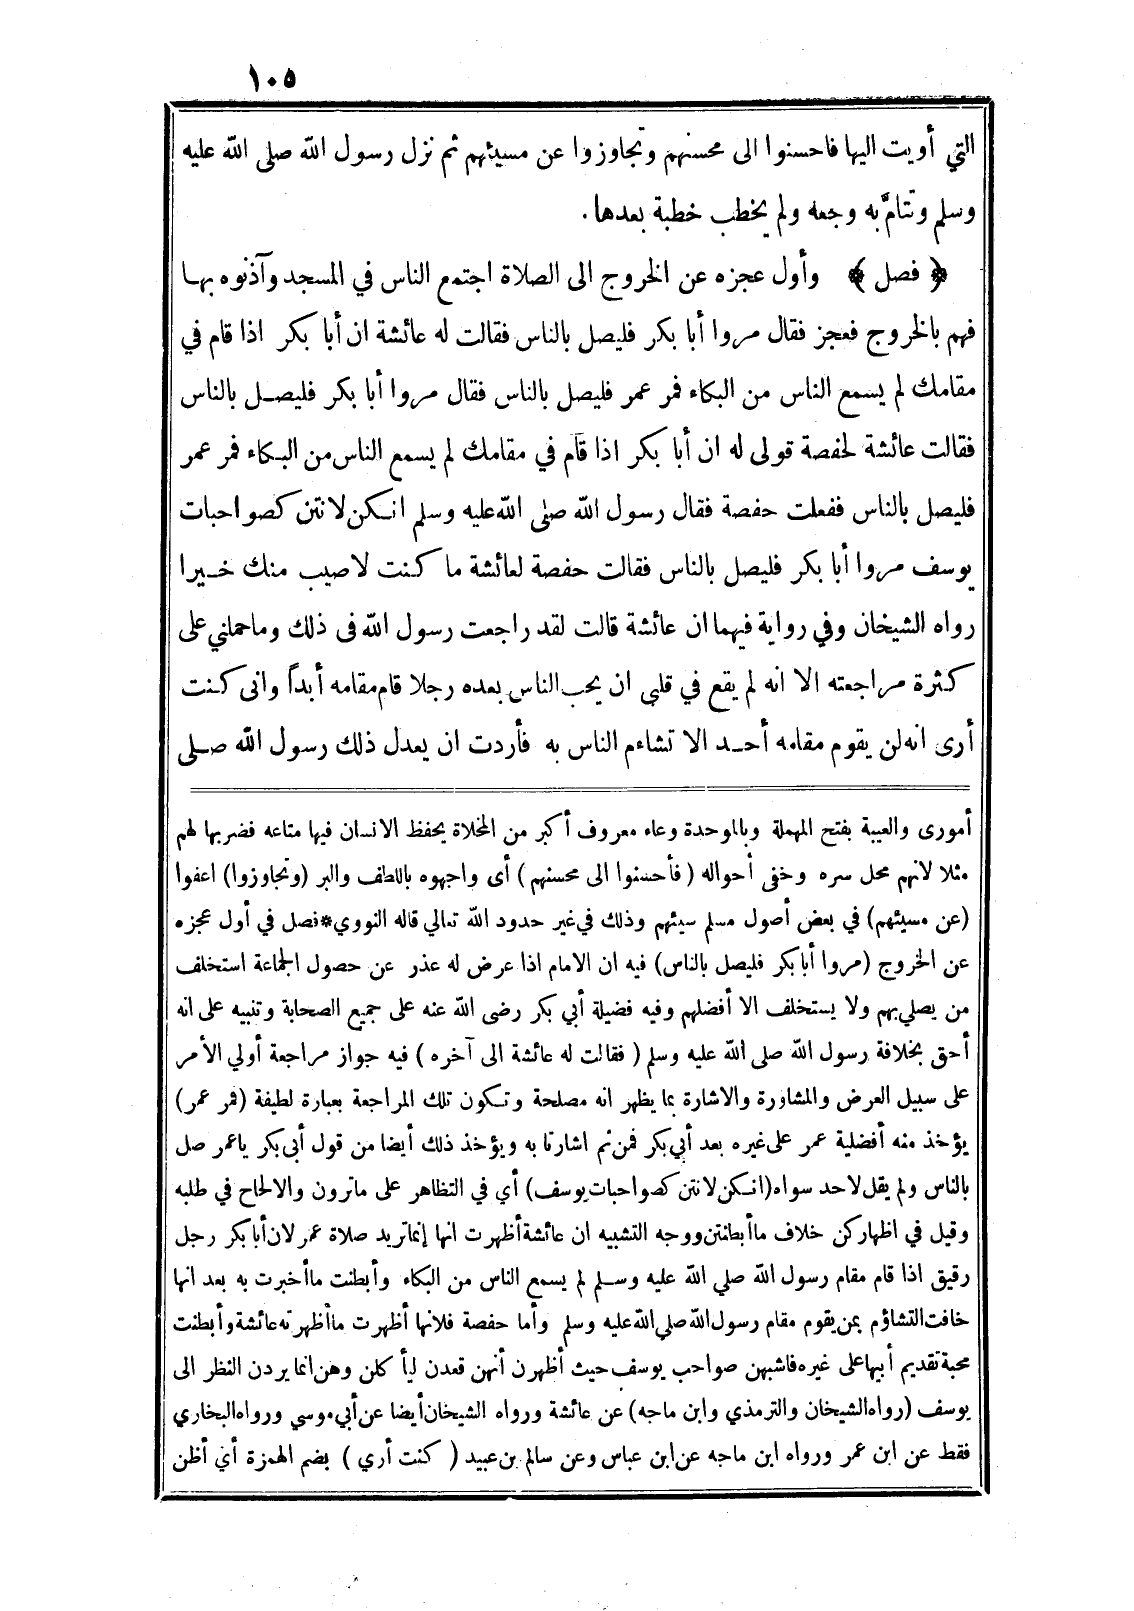 ١٠٥
التي أويت اليها فاحسنوا الى محسنهم وتجاوزوا عن مسيئهم ثم نزل رسول الله صلى الله عليه
وسلم وتتامَّ به وجعه ولم يخطب خطبة بعدها.
﴿ فصل ﴾ وأول عجزه عن الخروج الى الصلاة اجتمع الناس في المسجد وآذنوه بهـا
فهم بالخروج فعجز فقال مروا أبا بكر فليصل بالناس فقالت له عائشة ان أبا بكر اذا قام في
مقامك لم يسمع الناس من البكاء فمر عمر فليصل بالناس فقال مروا أبا بكر فليصـل بالناس
فقالت عائشة لحفصة قولى له ان أبا بكر اذا قام في مقامك لم يسمع الناس من البـكاء فمر عمر
فليصل بالناس ففعلت حفصة فقال رسول الله صلى الله عليه وسلم انـكن لانتن كصواحبات
يوسف مروا أبا بكر فليصل بالناس فقالت حفصة لعائشة ما كـنت لاصيب منك خـيرا
رواه الشيخان وفي رواية فيهما ان عائشة قالت لقد راجعت رسول الله فى ذلك وما حملني على
كثرة مراجعته الا انه لم يقع في قلبى ان يحب الناس بعده رجلا قام مقامه أبداً وانى كـنت
أرى انه لن يقوم مقامه أحـد الا تشاءم الناس به فأردت ان يعدل ذلك رسول الله صـلى
أمورى والعيبة بفتح المهملة وبالموحدة وعاء معروف أكبر من المخلاة يحفظ الانسان فيها متاعه فضربها لهم
مثلا لانهم محل سره وخفى أحواله ( فأحسنوا الى محسنهم ) أى واجهوه باللطف والبر (وتجاوزوا) اعفوا
(عن مسيئهم) في بعض أصول مسلم سيئهم وذلك في غير حدود الله تعالي قاله النووي*فصل في أول عجزه
عن الخروج (مروا أبا بكر فليصل بالناس) فيه ان الامام اذا عرض له عذر عن حصول الجماعة استخلف
من يصلي بهم ولا يستخلف الا أفضلهم وفيه فضيلة أبي بكر رضى الله عنه على جميع الصحابة وتنبيه على انه
أحق بخلافة رسول الله صلى الله عليه وسلم ( فقالت له عائشة الى آخره ) فيه جواز مراجعة أولي الأمر
على سبيل العرض والمشاورة والاشارة بما يظهر انه مصلحة وتـكون تلك المراجعة بعبارة لطيفة (فمر عمر)
يؤخذ منه أفضلية عمر على غيره بعد أبي بكر فمن ثم اشارتا به ويؤخذ ذلك أيضا من قول أبى بكر ياعمر صل
بالناس ولم يقل لاحد سواه (انـكن لانتن كصواحبات يوسف) أي في التظاهر على ماترون والالحاح في طلبه
وقيل في اظهاركن خلاف ما أبطنتن ووجه التشبيه ان عائشة أظهرت انها إنما تريد صلاة عمر لان أبا بكر رجل
رقيق اذا قام مقام رسول الله صلي الله عليه وسـلم لم يسمع الناس من البكاء وأبطنت ما أخبرت به بعد انها
خافت التشاؤم بمن يقوم مقام رسول الله صلي الله عليه وسلم وأما حفصة فلانها أظهرت ما أظهرته عائشة وأبطنت
محبة تقديم أبيها على غيره فاشبهن صواحب يوسف حيث أظهرن أنهن قعدن ليأكلن وهن انما يردن النظر الى
يوسف (رواه الشيخان والترمذي وابن ماجه) عن عائشة ورواه الشيخان أيضا عن أبي موسي ورواه البخاري
فقط عن ابن عمر ورواه ابن ماجه عن ابن عباس وعن سالم بن عبيد ( كنت أري ) بضم الهمزة أي أظن